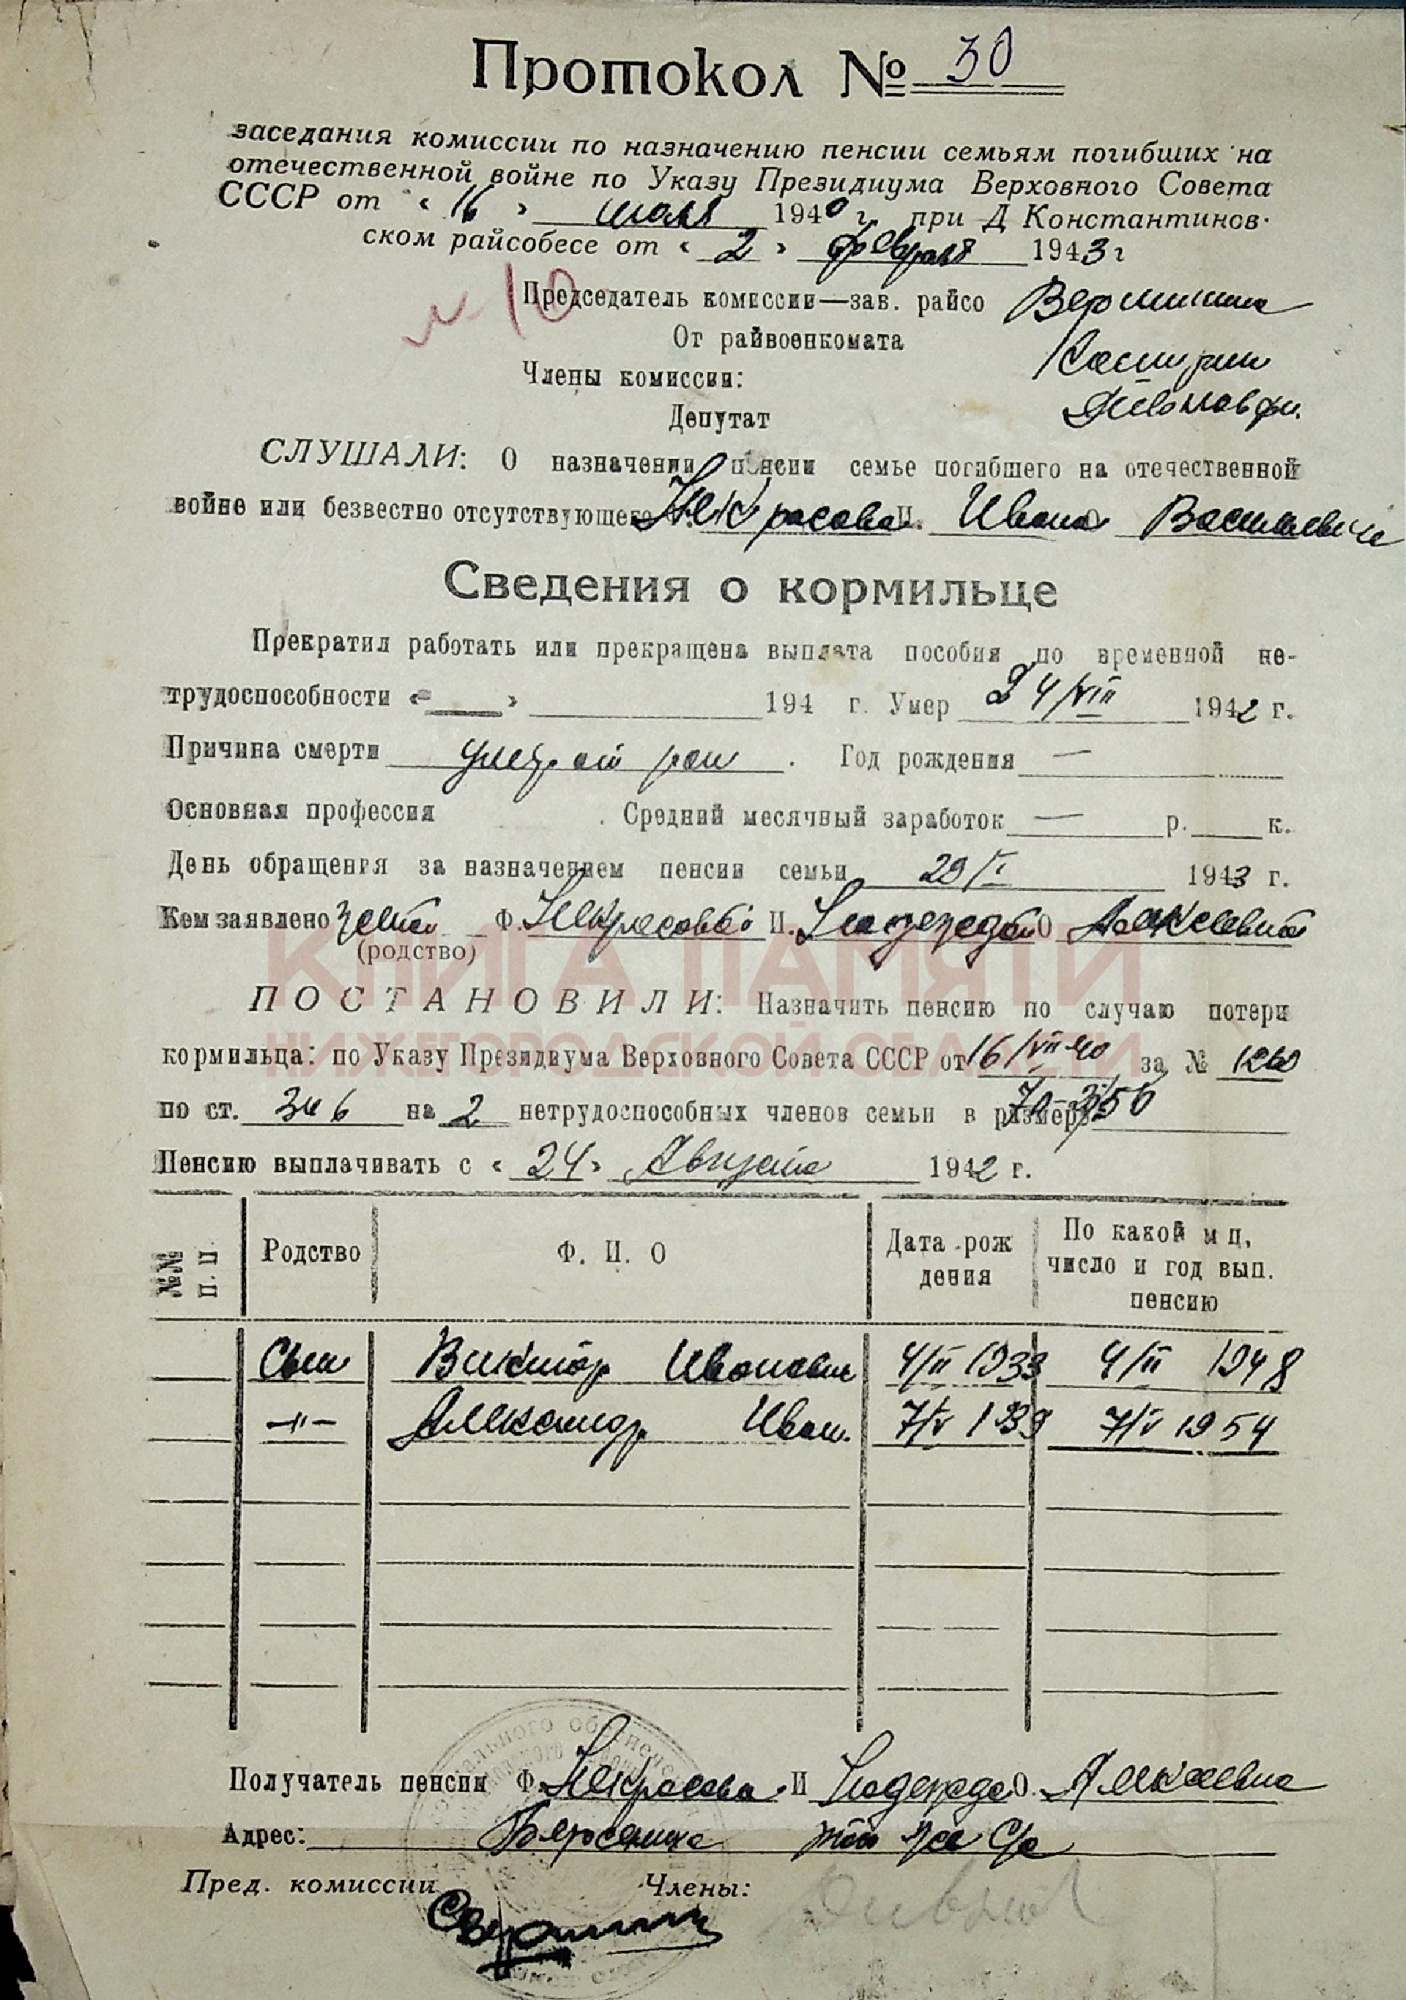 Протокол № 30
заседания комиссии по назначению пенсии семьям погибших на
отечественной войне по Указу Президиума Верховного Совета
СССР от « 16 » июля 1940 г. при Д Константинов-
ском райсобесе от « 2 » февраля 1943 г
№ 10
Председатель комиссии—зав. райсо Вершинина
От райвоенкомата
Члены комиссии:
Депутат
СЛУШАЛИ: О назначении пенсии семье погибшего на отечественной
войне или безвестно отсутствующего Ф. Некрасова И. Ивана О Васильевича
Сведения о кормильце
Прекратил работать или прекращена выплата пособия по временной не-
трудоспособности « » 194 г. Умер 24/VIII 1942 г.
Причина смерти умер от ран . Год рождения —
Основная профессия . Средний месячный заработок — р. к.
День обращения за назначением пенсии семьи 29/I 1943 г.
Кем заявлено женой Ф. Некрасовой И. Надеждой О Алексеевной
(родство)
КНИГА ПАМЯТИ
НИЖЕГОРОДСКОЙ ОБЛАСТИ
ПОСТАНОВИЛИ: Назначить пенсию по случаю потери
кормильца: по Указу Президиума Верховного Совета СССР от 16/VII-40 за № 1260
по ст. 3и6 на 2 нетрудоспособных членов семьи в размере
Пенсию выплачивать с « 24 » Августа 1942 г.
№№ п. п. Родство Ф. И. О Дата рож дения По какой м ц, число и год вып. пенсию
Сын Виктор Иванович 4/III 1933 4/III 1948
-"- Александр Иван. 7/V 139 7/V 1954
Получатель пенсии Ф. Некрасова И Надежда О. Алексеевна
Адрес: с/с
Пред. комиссии Члены: